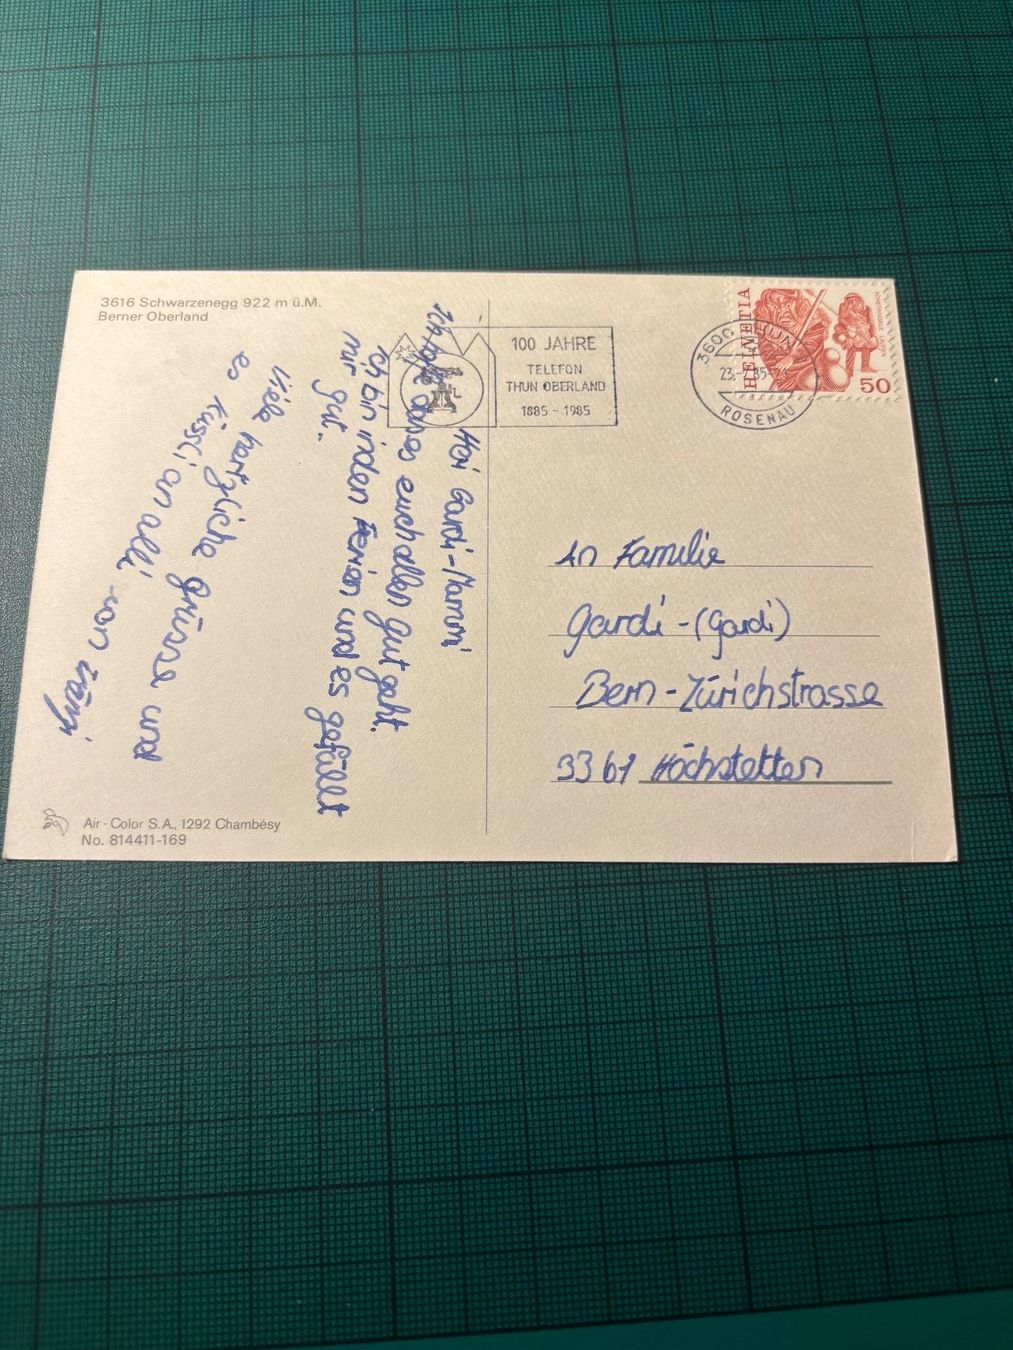 3616 Schwarzenegg 922 m ü.M.
Berner Oberland
100 JAHRE
TELEFON
THUN OBERLAND
1885 - 1985
3600 THUN
23.-7.85
ROSENAU
HELVETIA
50
Hei Gardi-Mammi
Ich hoffe dases euch allen gut geht.
Ich bin in den Ferien und es gefällt
mir gut..
Viele hertzliche Grüsse und
es Küssli an alli von
An Familie
Gardi-(Gardi)
Bern-Zürichstrasse
3361 Höchstetten
Air-Color S.A., 1292 Chambésy
No. 814411-169